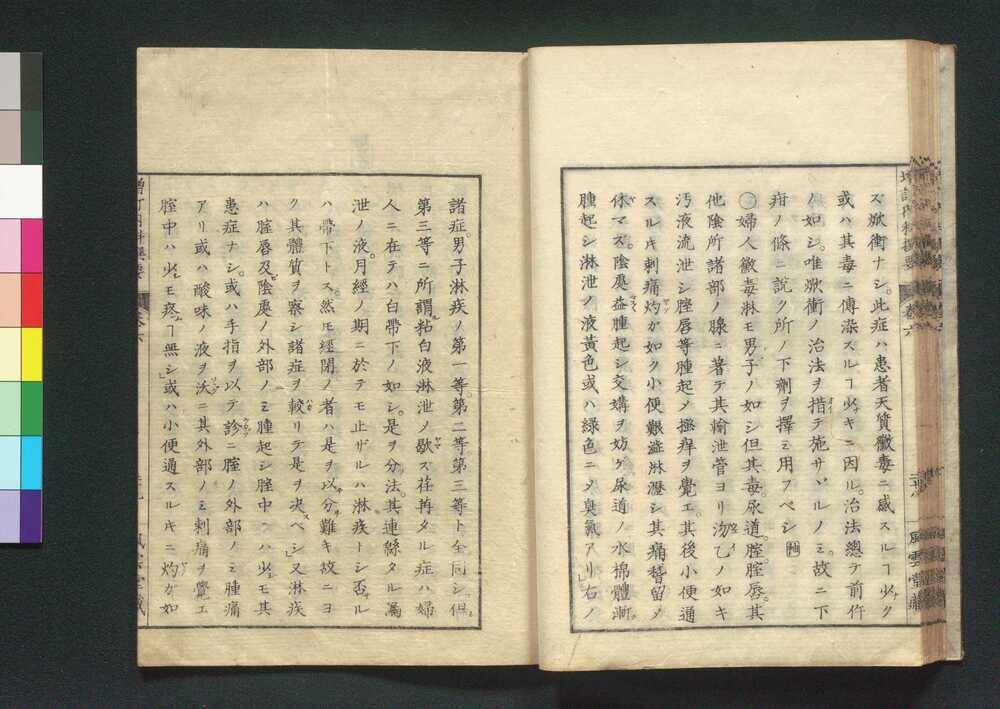 ズ焮衝ナシ。此症ハ患者天質黴毒ニ感スルヿ少ク
或ハ其毒ニ傳染スルヿ少キニ因ル。治法總テ前件
ノ如シ。唯焮衝ノ治法ヲ措テ施サヾルノミ。故ニ下
疳ノ條ニ説ク所ノ下劑ヲ擇ミ用フベシ
〇婦人黴毒淋モ男子ノ如シ但其毒。尿道。腟。腟唇。其
他陰所諸部ノ腺ニ著テ其輸泄管ヨリ沕乙ノ如キ
汚液流泄シ腟唇等腫起メ極痒ヲ覺エ。其後小便通
スルキ刺痛灼カ如ク小便艱澁淋瀝シ其痛暫留メ
休マズ。陰處益腫起シ交媾ヲ妨ケ尿道ノ水棉體漸
腫起シ淋泄ノ液黃色或ハ綠色ニメ臭氣アリ」右ノ
諸症。男子淋疾ノ第一等。第二等第三等ト全同シ。但
第三等ニ所謂粘白液淋泄ノ歇ズ荏苒タル症ハ婦
人ニ在テハ白帶下ノ如シ。是ヲ分法。其連綿タル屬
泄ノ液。月經ノ期ニ於テモ止ザルハ淋疾トシ否ル
ハ帶下トス。然モ經閉ノ者ハ是ヲ以分難キ故ニヨ
ク其體質ヲ察シ諸症ヲ較リテ是ヲ决ベシ」又淋疾
ハ腟唇及陰處ノ外部ノミ腫起シ腟中ハ少モ其
患症ナシ。或ハ手指ヲ以テ診ニ腟ノ外部ノミ腫痛
アリ或ハ酸味ノ液ヲ沃ニ其外部ノミ刺痛ヲ覺エ
腟中ハ少モ疼ヿ無シ」或ハ小便通スルキニ灼カ如